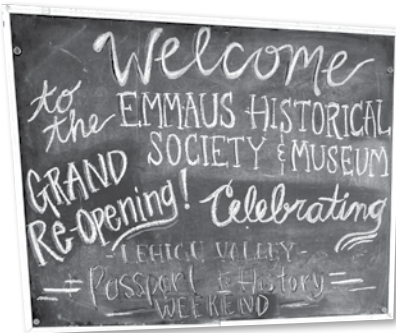 Welcome
to the EMMAUS HISTORICAL
SOCIETY & MUSEUM
GRAND
Re-Opening!
Celebrating
- LEHIGH VALLEY -
Passport to History
WEEKEND